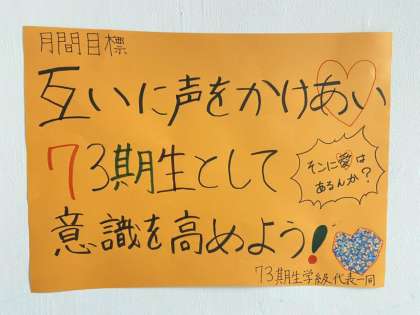 月間目標
互いに声をかけあい
73期生として
そこに愛は
あるんか?
意識を高めよう!
73期生学級代表一同